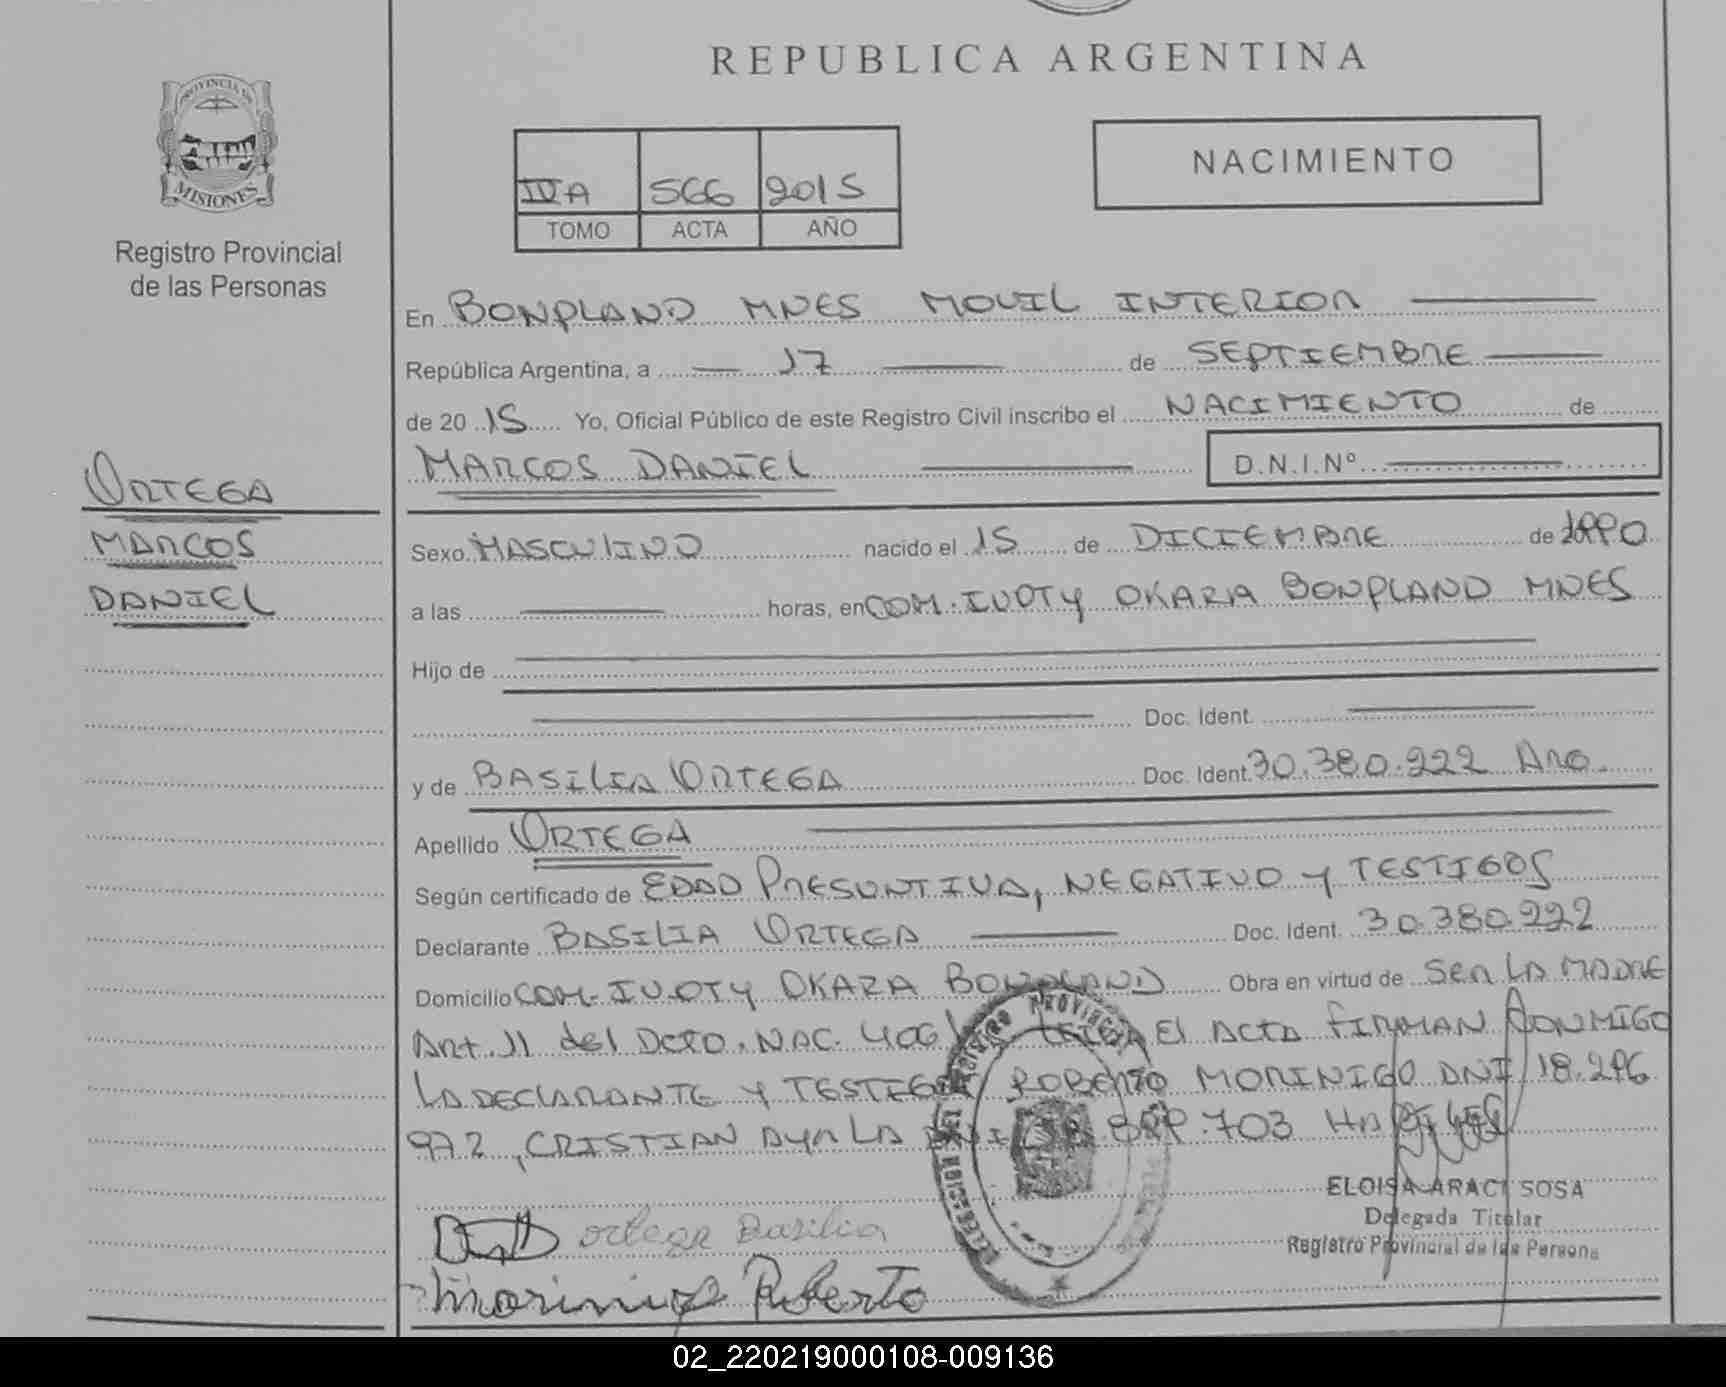 REPUBLICA ARGENTINA
PROVINCIA DE
MISIONES
Registro Provincial
de las Personas
NACIMIENTO
IVA 566 2015
TOMO ACTA AÑO
En BONPLAND MNES MOVIL INTERIOR
República Argentina, a 17 de SEPTIEMBRE
de 2015 Yo, Oficial Público de este Registro Civil inscribo el NACIMIENTO de
MARCOS DANIEL D.N.I.Nº
ORTEGA
MARCOS
DANIEL
Sexo MASCULINO nacido el 15 de DICIEMBRE de 1990
a las horas, en COM. IVOTY OKARA BONPLAND MNES
Hijo de
Doc. Ident.
y de BASILIA ORTEGA Doc. Ident. 30.380.222 ARG.
Apellido ORTEGA
Según certificado de EDAD PRESUNTIVA, NEGATIVO Y TESTIGOS
Declarante BASILIA ORTEGA Doc. Ident. 30.380.222
Domicilio COM. IVOTY OKARA BONPLAND Obra en virtud de SER LA MADRE
Art. 11 del DCTO. NAC. 406 El ACTA FIRMAN CONMIGO
LA DECLARANTE Y TESTIGOS ROBERTO MORINIGO DNI 18.296
972, CRISTIAN AYALA DNI 703
ELOISA ARACI SOSA
Delegada Titular
Registro Provincial de las Persona
ortega Basilia
Morinigo Roberto
02_220219000108-009136